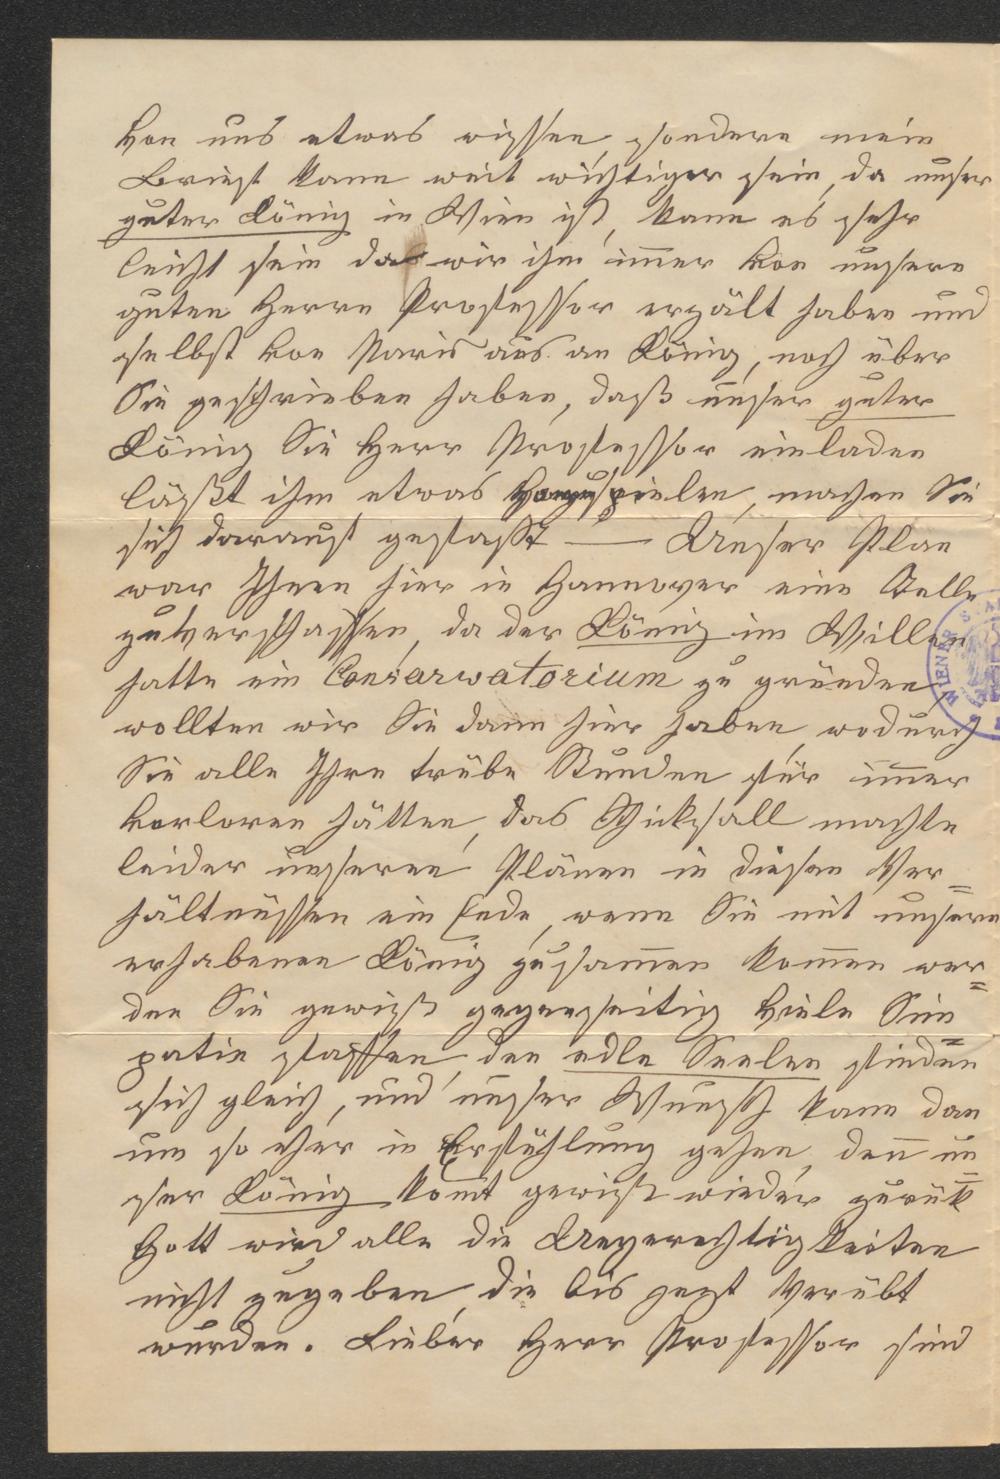 von uns etwas wißsen, sondern mein
Brief kann weit wichtiger sein, da unser
guter König in Wien ist, kann es sehr
leicht sein das wir ihm im̄er von unsern
guten Herrn Professor erzält haben und
selbst von Paris aus an König, noch über
Sie geschrieben haben, daß unser guter
König Sie Herr Professor einladen
läßt ihm etwas vorzuspielen, machen Sie
sich darauf gefaßt — Unser Plan
war Ihnen hier in Hannover eine Stelle
zuverschaffen, da der König im Willen
hatte ein Consarwatorium zu gründen,
wollten wir Sie dann hier haben, wodurch
Sie alle Ihre trübe Stunden für im̄er
verloren hätten, das Schicksall machte
leider unseren Plänen in diesen Ver=
hältnüssen ein Ende, wenn Sie mit unsern
erhabenen König zusam̄en kom̄en wer=
den Sie gewiß gegenseitig viele Sim=
patie faffen, den edle Seelen finden
sich gleich, und unser Wunsch kann dan
um so eher in Erfühlung gehen, den̄ un=
ser König kom̄t gewiß wieder zurük
Gott wird alle die Ungerechtigkeiten
nicht zugeben, die bis jezt verübt
wurden. Lieber Herr Professor sind
WIENER